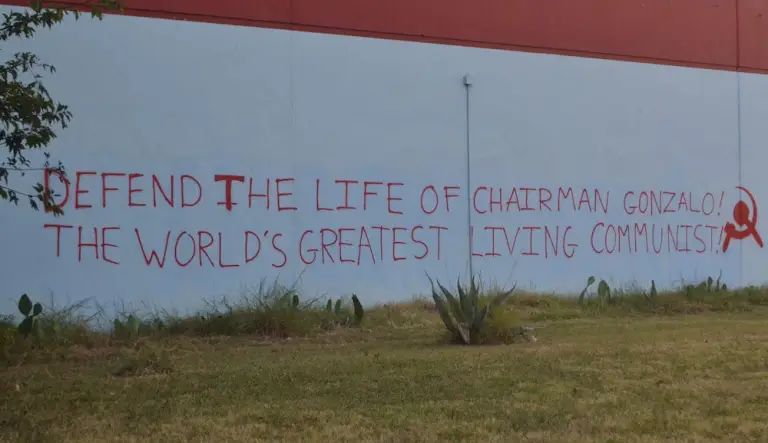 DEFEND THE LIFE OF CHAIRMAN GONZALO!
THE WORLD'S GREATEST LIVING COMMUNIST!